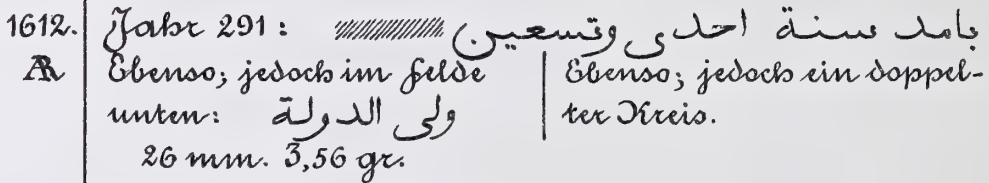 1612. Jahr 291: بامد سنة احدى وتسعين
AR Ebenso; jedoch im Felde
unten: ولى الدولة
26 mm. 3,56 gr.
Ebenso; jedoch ein doppel-
ter Kreis.